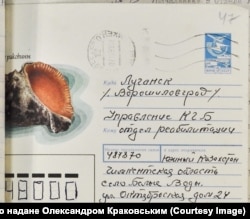 47
Куда Луганск
/ Ворошиловград /
Кому Управление КГБ
отдел реабилитации
487870 Южный Казахстан
Чимкентская область
село Белые Воды
ул. Октябрьская дом 24
48000
о надане Олександром Краковським (Courtesy Image